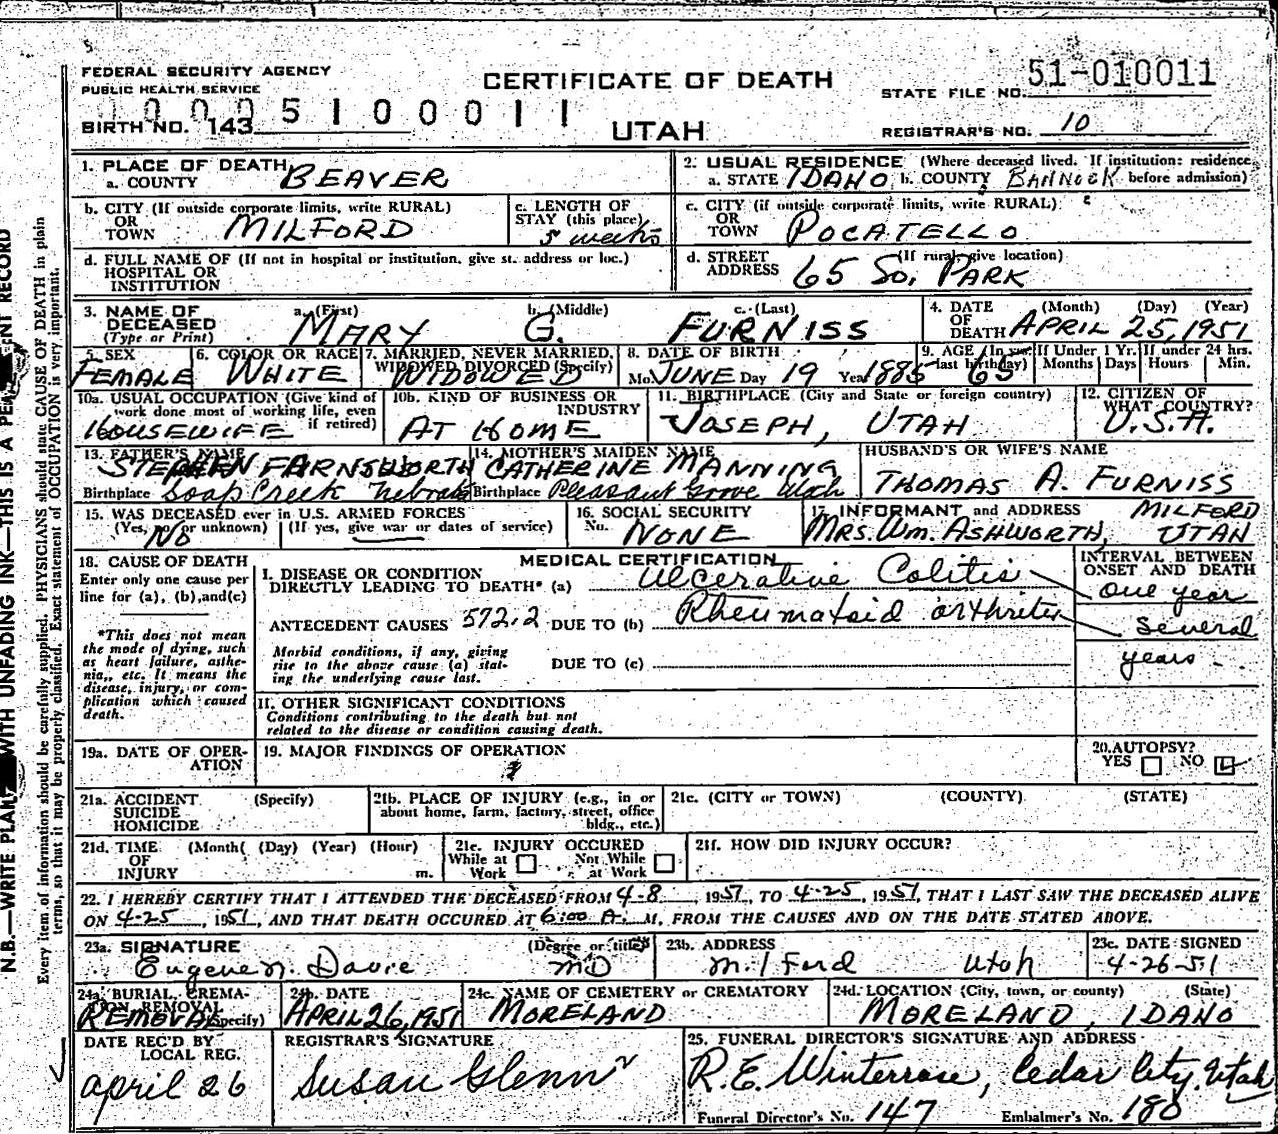 FEDERAL SECURITY AGENCY
PUBLIC HEALTH SERVICE
CERTIFICATE OF DEATH
STATE FILE NO. 51-010011
00005100011
BIRTH NO. 143
UTAH
REGISTRAR'S NO. 10
1. PLACE OF DEATH
a. COUNTY BEAVER
2. USUAL RESIDENCE (Where deceased lived. If institution: residence before admission)
a. STATE IDAHO b. COUNTY BANNOCK
b. CITY (If outside corporate limits, write RURAL)
OR
TOWN MILFORD
c. LENGTH OF
STAY (this place)
5 weeks
c. CITY (if outside corporate limits, write RURAL)
OR
TOWN POCATELLO
d. FULL NAME OF (If not in hospital or institution, give st. address or loc.)
HOSPITAL OR
INSTITUTION
d. STREET (If rural, give location)
ADDRESS 65 SO. PARK
3. NAME OF
DECEASED
(Type or Print)
a. (First) MARY
b. (Middle) G.
c. (Last) FURNISS
4. DATE (Month) (Day) (Year)
OF
DEATH APRIL 25, 1951
5. SEX
FEMALE
6. COLOR OR RACE
WHITE
7. MARRIED, NEVER MARRIED,
WIDOWED, DIVORCED (Specify)
WIDOWED
8. DATE OF BIRTH
Mo. JUNE Day 19 Year 1885
9. AGE (In yrs. last birthday) 65
If Under 1 Yr. Months Days
If under 24 hrs. Hours Min.
10a. USUAL OCCUPATION (Give kind of
work done most of working life, even
if retired)
HOUSEWIFE
10b. KIND OF BUSINESS OR
INDUSTRY
AT HOME
11. BIRTHPLACE (City and State or foreign country)
JOSEPH, UTAH
12. CITIZEN OF
WHAT COUNTRY?
U.S.A.
13. FATHER'S NAME
STEPHEN FARNSWORTH
Birthplace Soap Creek Nebraska
14. MOTHER'S MAIDEN NAME
CATHERINE MANNING
Birthplace Pleasant Grove Utah
HUSBAND'S OR WIFE'S NAME
THOMAS A. FURNISS
15. WAS DECEASED ever in U.S. ARMED FORCES
(Yes, no or unknown) (If yes, give war or dates of service)
No
16. SOCIAL SECURITY
No. NONE
17. INFORMANT and ADDRESS MILFORD
MRS. WM. ASHWORTH, UTAH
18. CAUSE OF DEATH
Enter only one cause per
line for (a), (b), and (c)
*This does not mean
the mode of dying, such
as heart failure, asthe-
nia, etc. It means the
disease, injury, or com-
plication which caused
death.
MEDICAL CERTIFICATION
I. DISEASE OR CONDITION
DIRECTLY LEADING TO DEATH* (a) Ulcerative Colitis
ANTECEDENT CAUSES 572.2 DUE TO (b) Rheumatoid arthritis
Morbid conditions, if any, giving
rise to the above cause (a) stat-
ing the underlying cause last.
DUE TO (c)
INTERVAL BETWEEN
ONSET AND DEATH
One year
several
years
II. OTHER SIGNIFICANT CONDITIONS
Conditions contributing to the death but not
related to the disease or condition causing death.
19a. DATE OF OPER-
ATION
19. MAJOR FINDINGS OF OPERATION
20. AUTOPSY?
YES NO
21a. ACCIDENT (Specify)
SUICIDE
HOMICIDE
21b. PLACE OF INJURY (e.g., in or
about home, farm, factory, street, office
bldg., etc.)
21c. (CITY or TOWN) (COUNTY) (STATE)
21d. TIME (Month( (Day) (Year) (Hour)
OF
INJURY m.
21e. INJURY OCCURED
While at Work Not While at Work
21f. HOW DID INJURY OCCUR?
22. I HEREBY CERTIFY THAT I ATTENDED THE DECEASED FROM 4-8, 1951, TO 4-25, 1951, THAT I LAST SAW THE DECEASED ALIVE
ON 4-25, 1951, AND THAT DEATH OCCURED AT 6:00 A. M, FROM THE CAUSES AND ON THE DATE STATED ABOVE.
23a. SIGNATURE (Degree or title)
MD
23b. ADDRESS
Milford Utah
23c. DATE SIGNED
4-26-51
24a. BURIAL, CREMA-
TION, REMOVAL
(Specify)
REMOVAL
24b. DATE
APRIL 26, 1951
24c. NAME OF CEMETERY or CREMATORY
MORELAND
24d. LOCATION (City, town, or county) (State)
MORELAND, IDAHO
DATE REC'D BY
LOCAL REG.
april 26
REGISTRAR'S SIGNATURE
Susan Glenn
25. FUNERAL DIRECTOR'S SIGNATURE AND ADDRESS
R.E. Winterrose, Cedar City, Utah
Funeral Director's No. 147 Embalmer's No. 180
N.B.—WRITE PLAINLY WITH UNFADING INK—THIS IS A PERMANENT RECORD
Every item of information should be carefully supplied. PHYSICIANS should state CAUSE OF DEATH in plain
terms, so that it may be properly classified. Exact statement of OCCUPATION is very important.